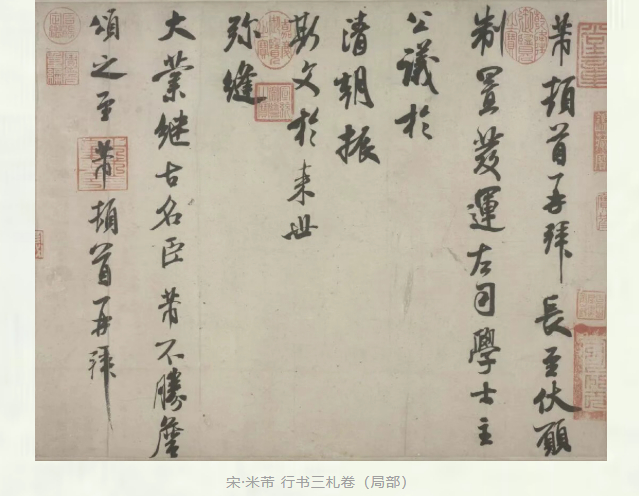 芾頓首再拜長至伏願
制置發運左司學士主
公議於
清朝振
斯文於來世
弥縫
大業继古名臣芾不勝詹
頌之至芾頓首再拜
宋·米芾 行书三札卷（局部）